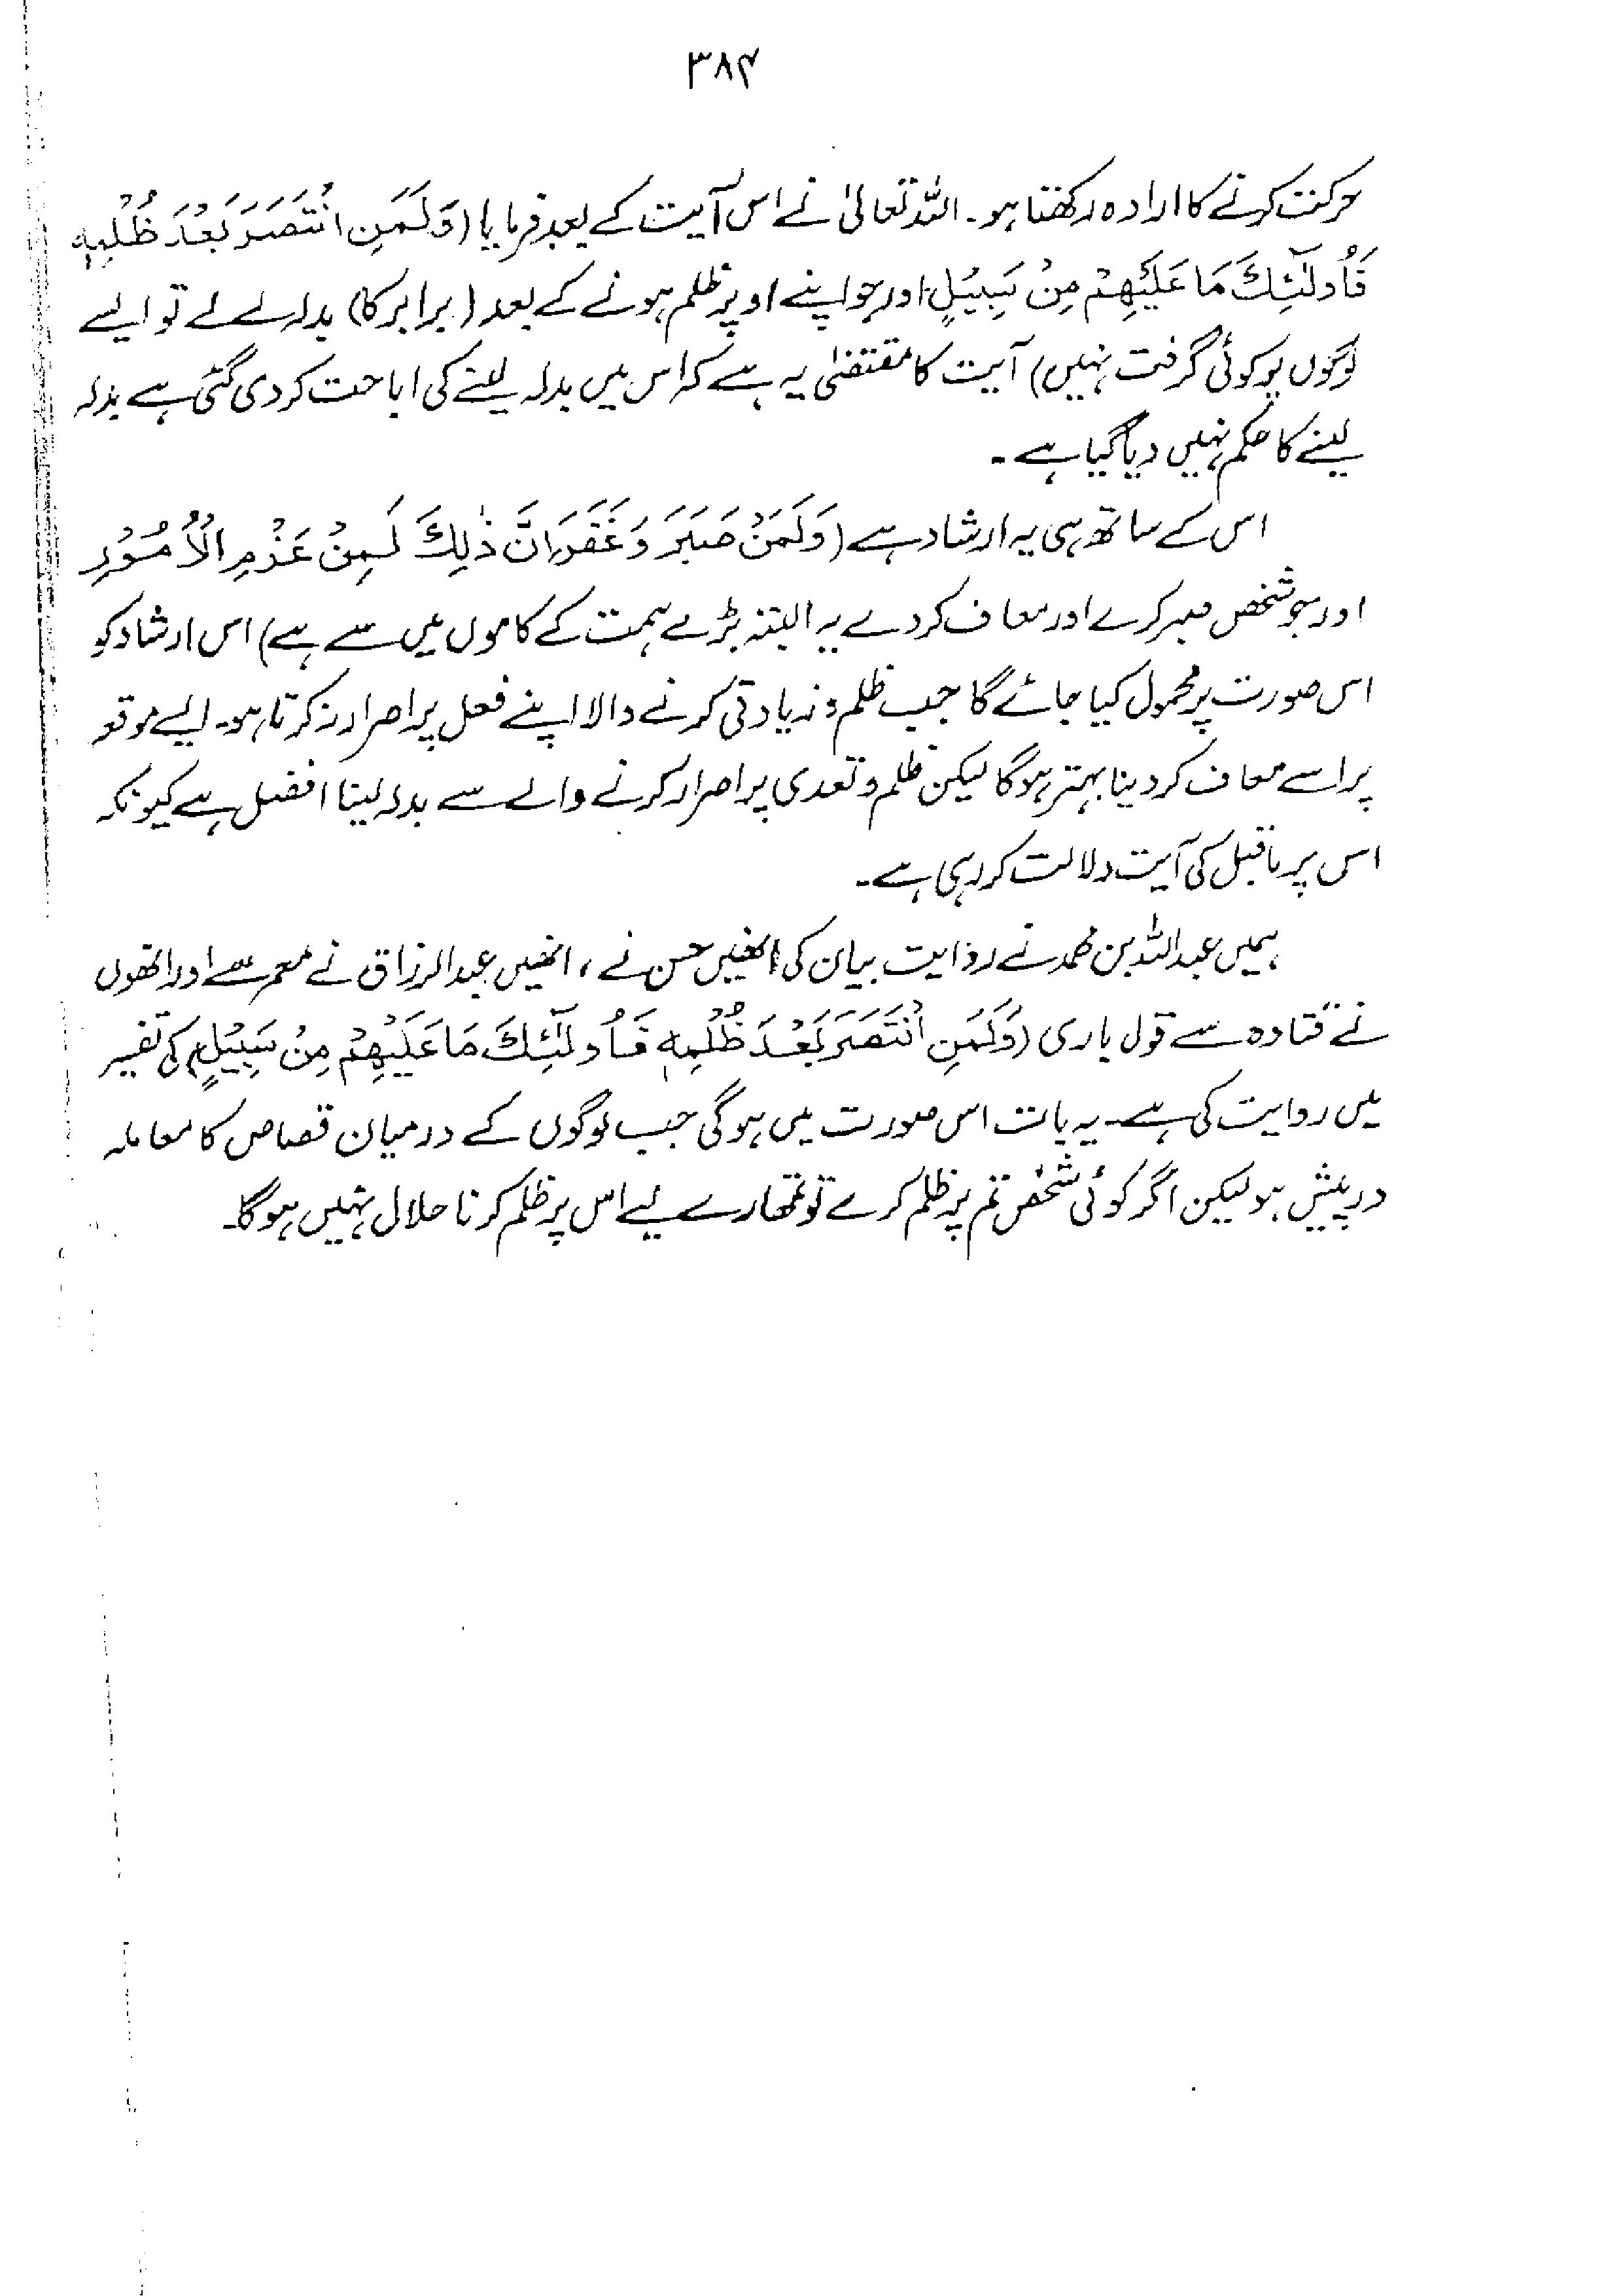 ۳۸۴
حرکت کرنے کا ارادہ رکھتا ہو۔ اللہ تعالیٰ نے اس آیت کے بعد فرمایا (وَلَمَنِ انْتَصَرَ بَعْدَ ظُلْمِهٖ
فَاُولٰٓئِكَ مَا عَلَيْهِمْ مِنْ سَبِيْلٍ اور جو اپنے اوپر ظلم ہونے کے بعد (برابر کا) بدلہ لے لے تو ایسے
لوگوں پر کوئی گرفت نہیں) آیت کا مقتضیٰ یہ ہے کہ اس میں بدلہ لینے کی اباحت کردی گئی ہے بدلہ
لینے کا حکم نہیں دیا گیا ہے۔
اس کے ساتھ ہی یہ ارشاد ہے (وَلَمَنْ صَبَرَ وَغَفَرَ اِنَّ ذٰلِكَ لَمِنْ عَزْمِ الْاُمُوْرِ
اور جو شخص صبر کرے اور معاف کردے یہ البتہ بڑے ہمت کے کاموں میں سے ہے) اس ارشاد کو
اس صورت پر محمول کیا جائے گا جب ظلم و زیادتی کرنے والا اپنے فعل پر اصرار نہ کرتا ہو۔ ایسے موقعہ
پر اسے معاف کردینا بہتر ہوگا لیکن ظلم و تعدی پر اصرار کرنے والے سے بدلہ لینا افضل ہے کیونکہ
اس پر ماقبل کی آیت دلالت کررہی ہے۔
ہمیں عبداللہ بن محمد نے روایت بیان کی انھیں حسن نے، انھیں عبدالرزاق نے معمر سے اور انھوں
نے قتادہ سے قول باری (وَلَمَنِ انْتَصَرَ بَعْدَ ظُلْمِهٖ فَاُولٰٓئِكَ مَا عَلَيْهِمْ مِنْ سَبِيْلٍ) کی تفسیر
میں روایت کی ہے۔ یہ بات اس صورت میں ہوگی جب لوگوں کے درمیان قصاص کا معاملہ
درپیش ہو لیکن اگر کوئی شخص تم پر ظلم کرے تو تمھارے لیے اس پر ظلم کرنا حلال نہیں ہوگا۔